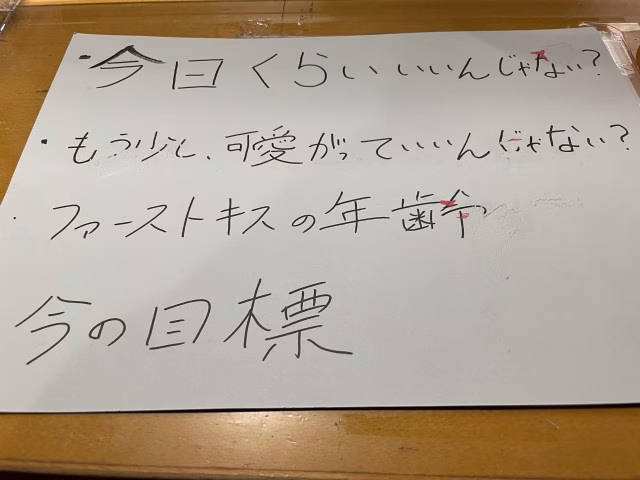 ・今日くらいいいんじゃない？
・もう少し、可愛がっていいんじゃない？
・ファーストキスの年齢
今の目標